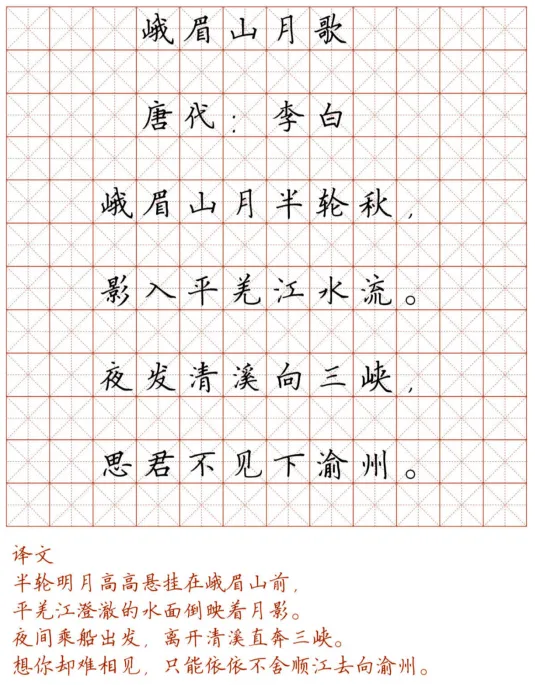 峨眉山月歌
唐代：李白
峨眉山月半轮秋，
影入平羌江水流。
夜发清溪向三峡，
思君不见下渝州。
译文
半轮明月高高悬挂在峨眉山前，
平羌江澄澈的水面倒映着月影。
夜间乘船出发，离开清溪直奔三峡。
想你却难相见，只能依依不舍顺江去向渝州。